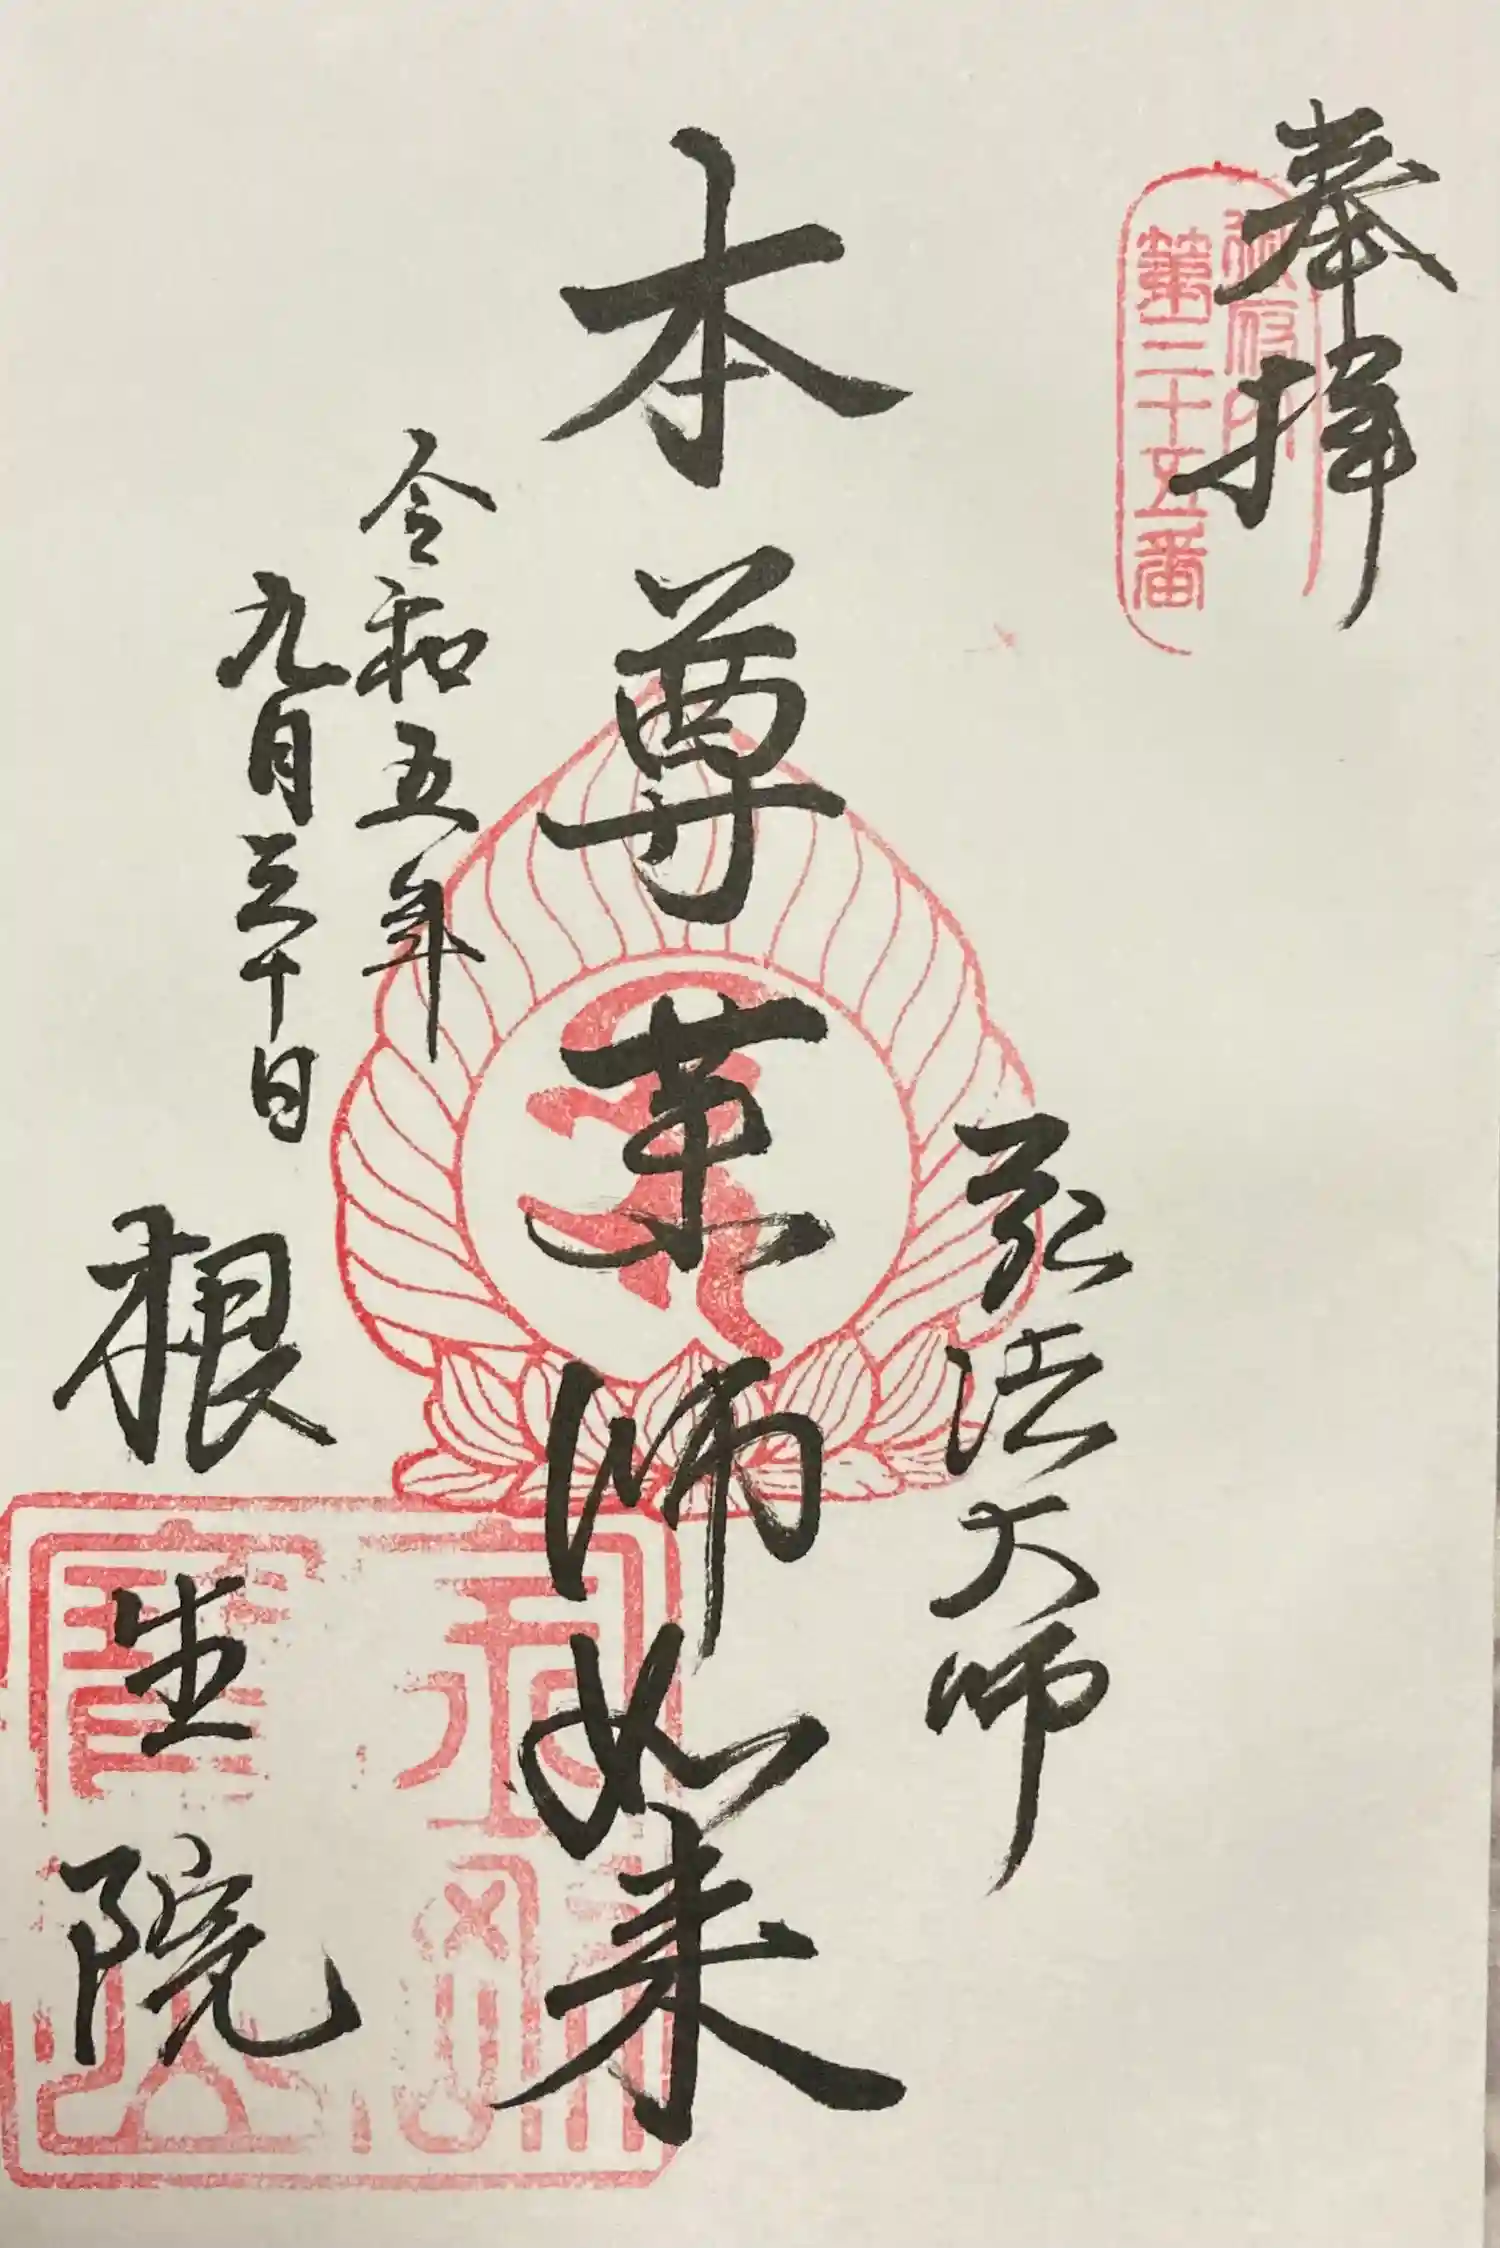 奉拝
御府内
第三十五番
弘法大師
本尊薬師如来
令和五年
九月三十日
根生院